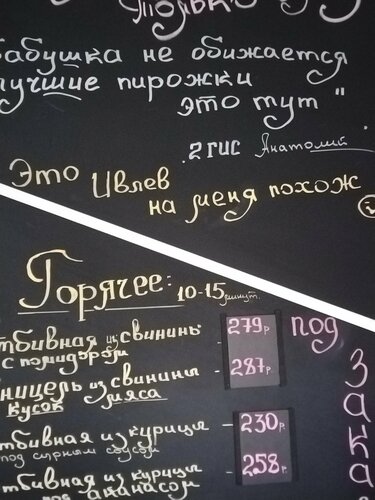 только
бабушка не обижается
лучшие пирожки
это тут"
2 гис Анатолий
Это Ивлев
на меня похож
Горячее: 10-15 минут.
тбивная из свинины 279р под
с помидором
ницель из свинины 287р
кусок мяса
тбивная из курицы 230р
под сырным соусом
тбивная из курицы 258р
под ананасом
зака